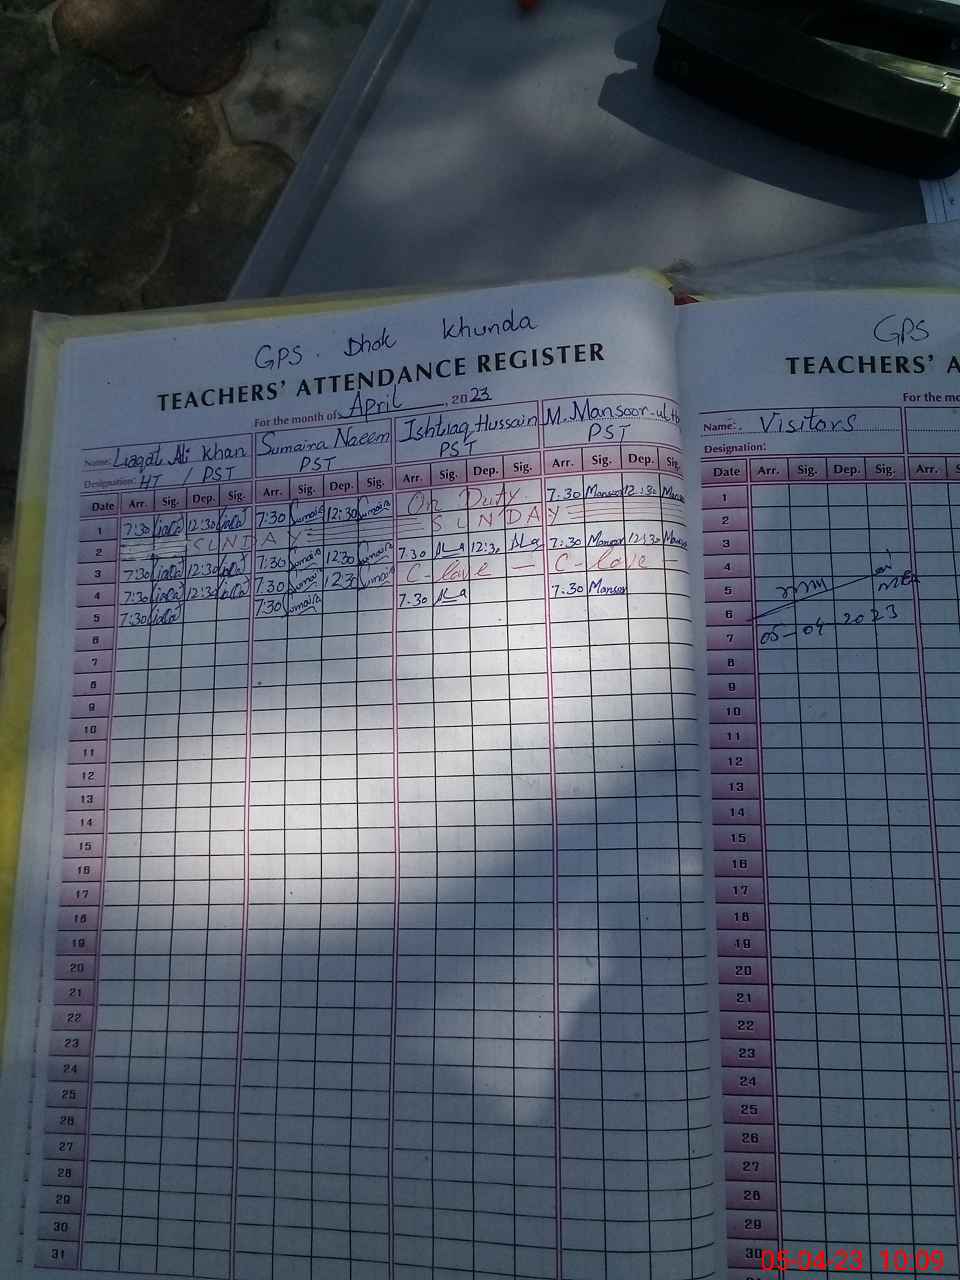 GPS. Dhok Khunda
TEACHERS' ATTENDANCE REGISTER
For the month of April, 2023
Name: Liaqat Ali Khan Sumaira Naeem Ishtiaq Hussain M. Mansoor-ul-
Designation: HT / PST PST PST PST
Date Arr. Sig. Dep. Sig. Arr. Sig. Dep. Sig. Arr. Sig. Dep. Sig. Arr. Sig. Dep. Sig.
1 7:30 12:30 7:30 Sumaira 12:30 Sumaira On Duty 7.30 Mansoor 12:30
2 SUNDAY SUNDAY
3 7:30 12:30 7:30 Sumaira 1230 Sumaira 7.30 12:30 7.30 Mansoor 12:30
4 7:30 12:30 7.30 Sumaira 1230 Sumaira C-leave — C-leave —
5 7:30 7:30 Sumaira 7.30 7.30 Mansoor
6
7
8
9
10
11
12
13
14
15
16
17
18
19
20
21
22
23
24
25
26
27
28
29
30
31
GPS
TEACHERS' A
For the mo
Name: Visitors
Designation:
Date Arr. Sig. Dep. Sig. Arr. S
1
2
3
4
5
6
7 05-04 2023
8
9
10
11
12
13
14
15
16
17
18
19
20
21
22
23
24
25
26
27
28
29
30
05-04-23 10:09